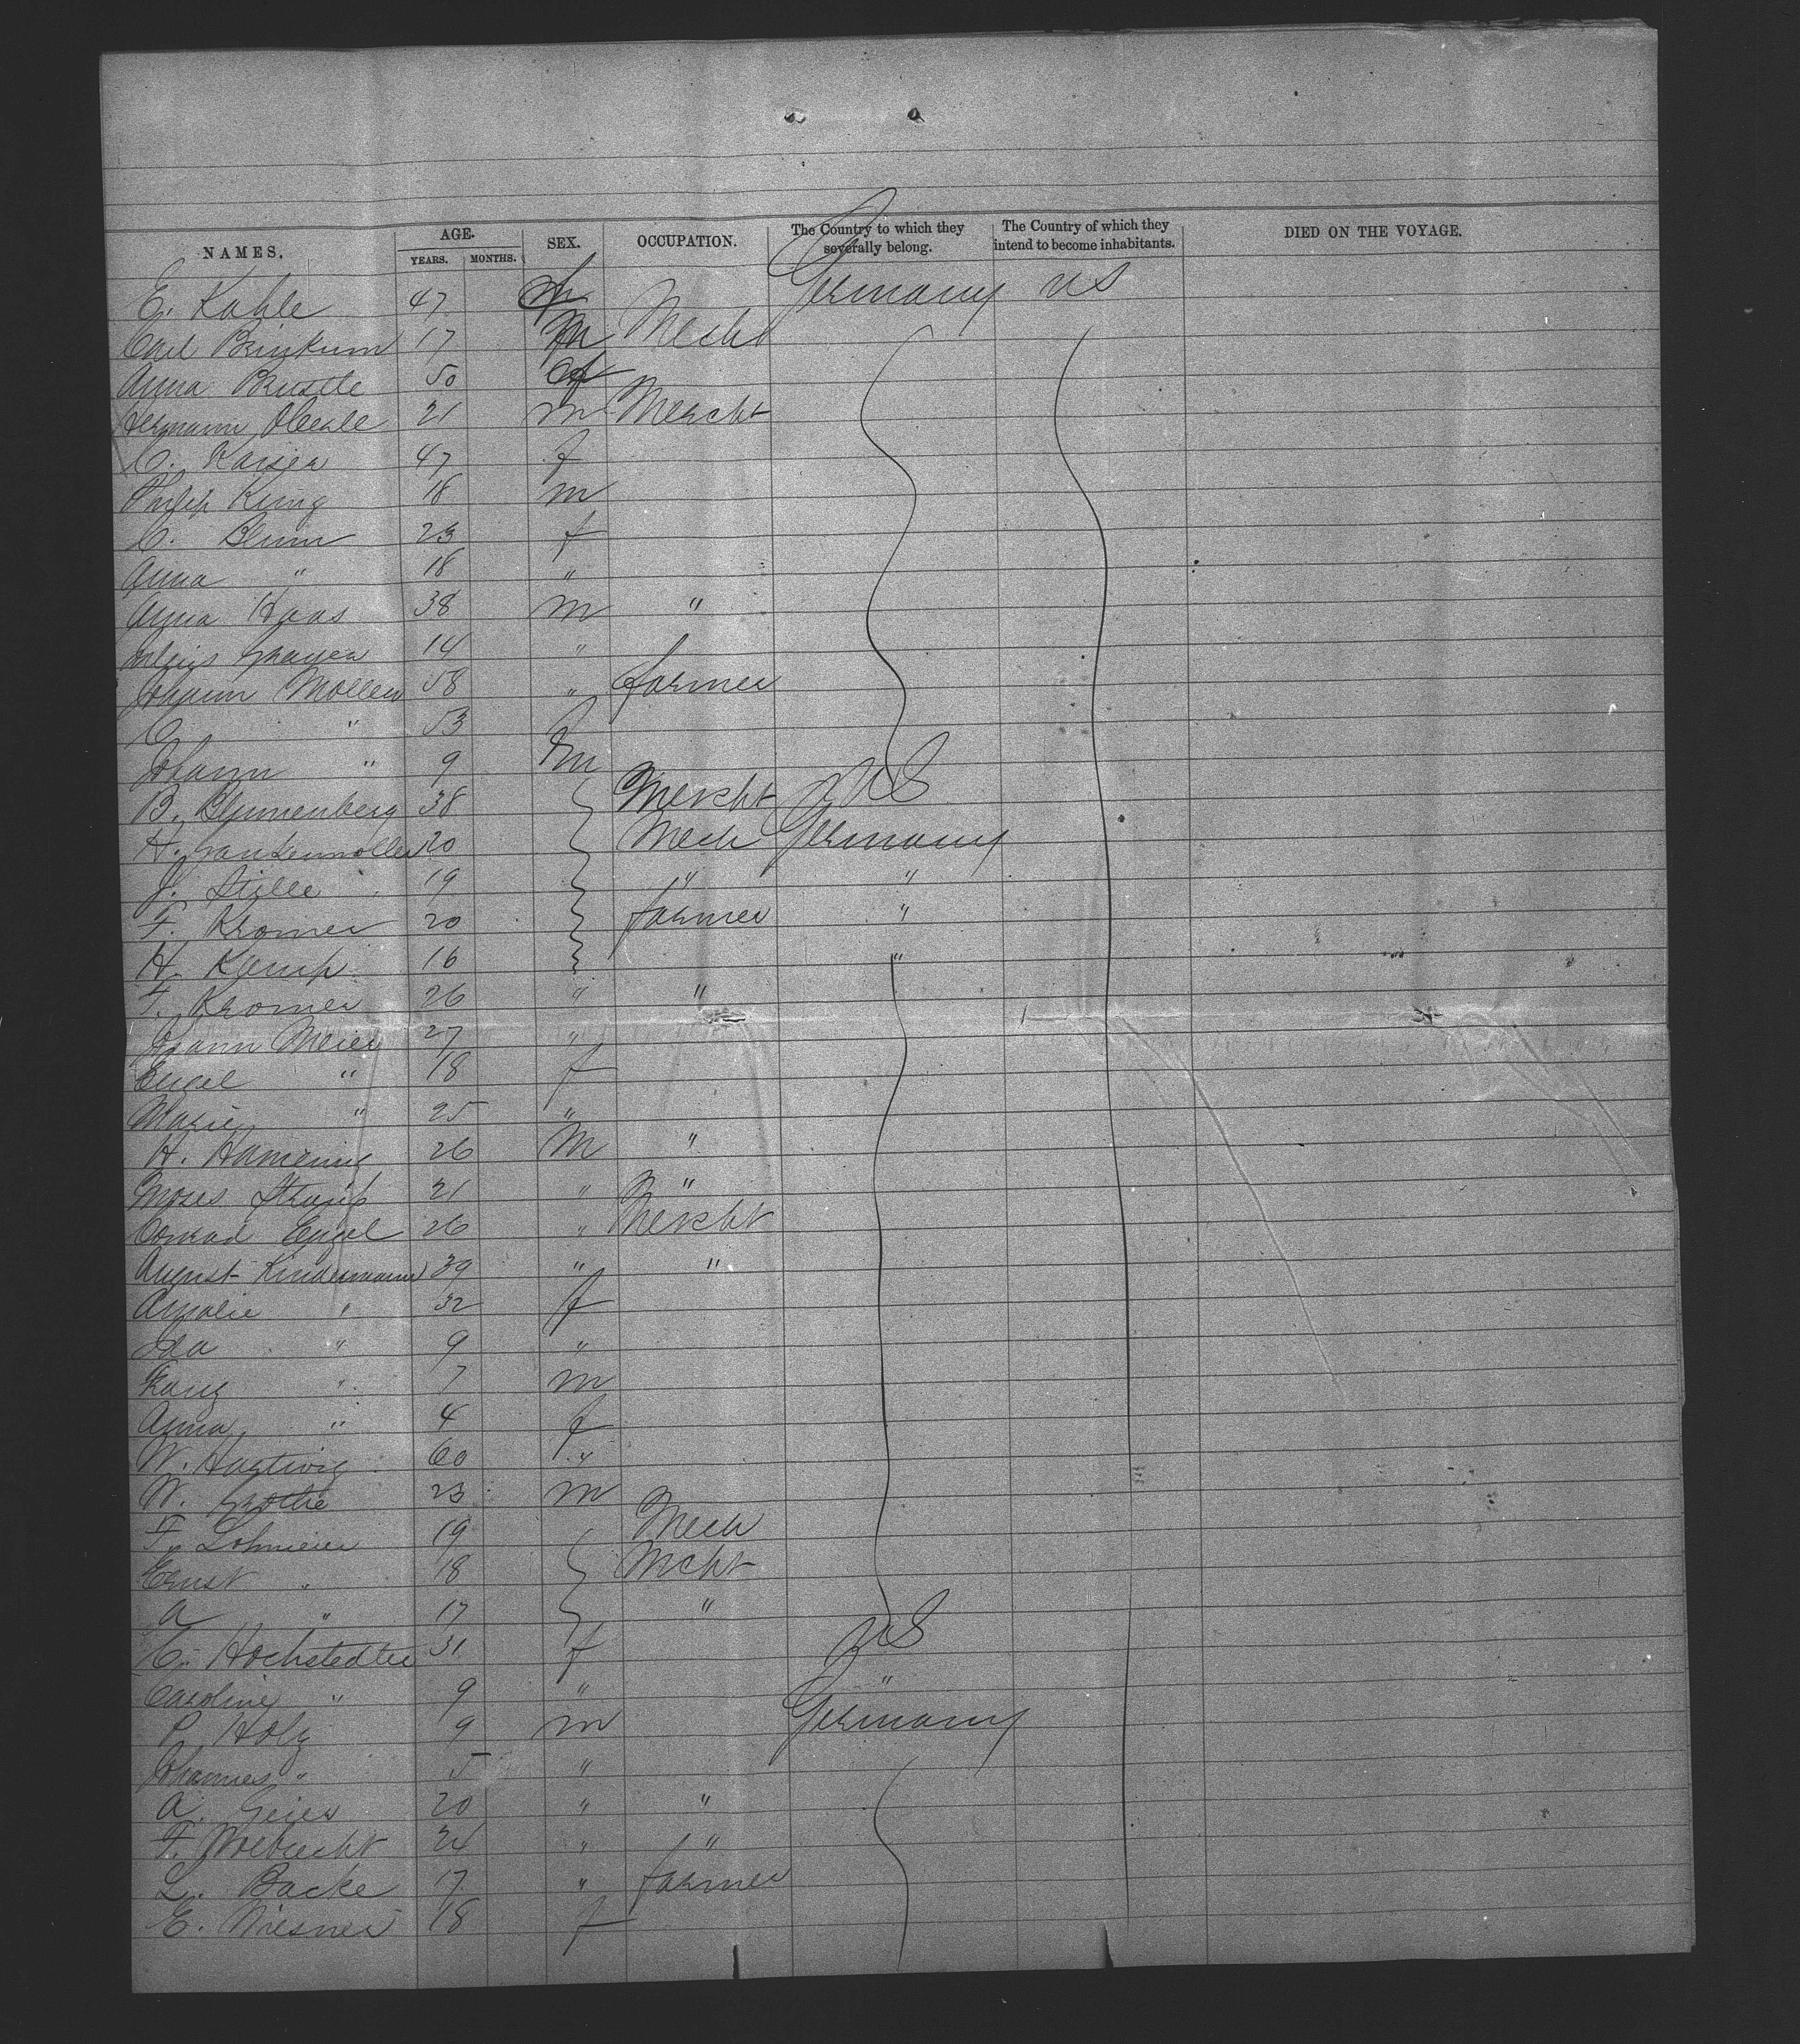 NAMES. AGE. SEX. OCCUPATION. The Country to which they severally belong. The Country of which they intend to become inhabitants. DIED ON THE VOYAGE.
YEARS. MONTHS.
E. Kahle 47 Germany US
Carl Brinkum 17 m Mecht
Anna Brustle 50 f
Hermann 21 m Mercht
C. Kaiser 47 f
Philip King 18 m
C. Blum 23 f
Anna " 18 "
Anna Haas 38 m "
Julius 14 "
Johann Moller 58 " farmer
C " 53 f
Johann " 9 m
B. Blumenberg 38 Mercht US
H. 20 Mech Germany
J. Stille 19 " "
F. Kromer 20 farmer "
H. Kamp 16 "
F. Kromer 26 " "
Johann Meier 27 "
Engel " 18 f
Marie " 25 "
H. 26 m "
Moses 21 " "
Conrad Engel 26 " Mercht
August Kindermann 39 " "
Amalie " 32 f
Ida " 9 "
Franz " 7 m
Anna " 4 f
W. Hartwig 60 "
W. Grothe 23 m
F. Lohmeier 19 Mech
Ernst " 18 Mcht
A " 17 "
C. Hochstedter 31 f US
Caroline " 9 " "
P Holz 9 m Germany
Johannes " 5 "
A. Geier 20 " "
F. 24 " "
L. Backe 17 " farmer
E. Niesner 18 f